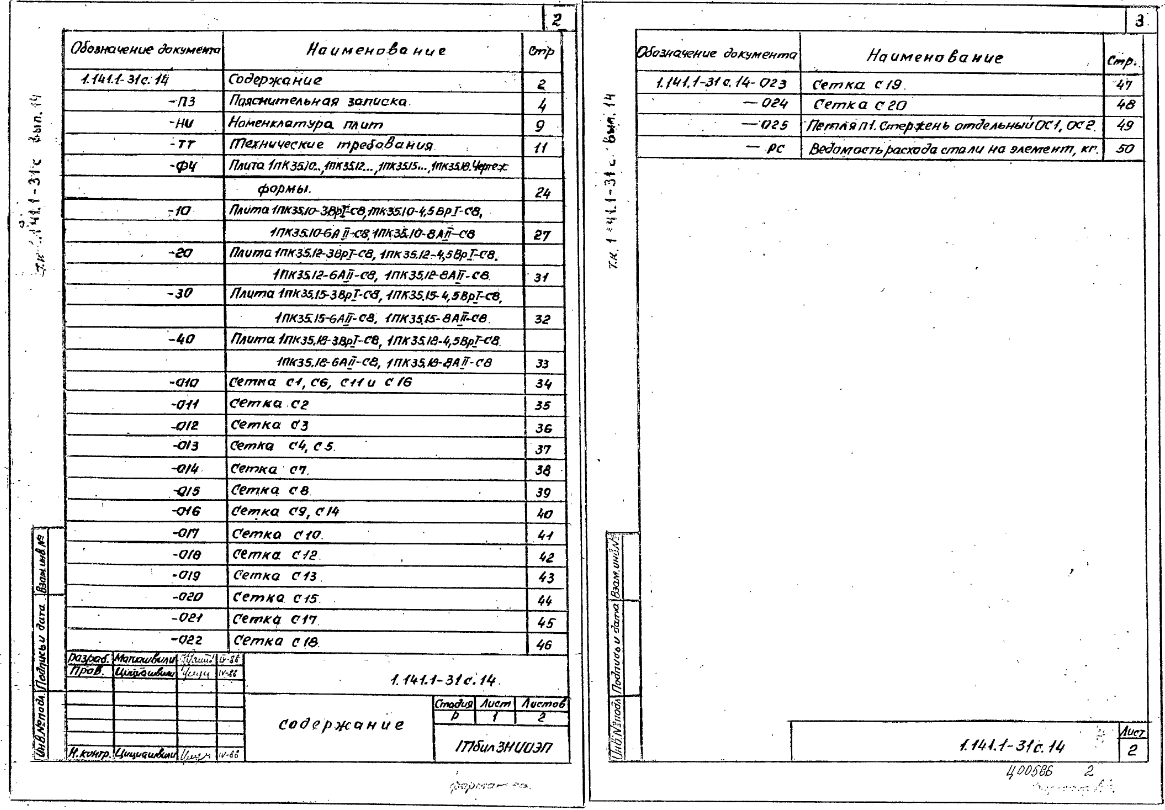 2
Обозначение документа Наименование Стр
1.141.1-31с.14 Содержание 2
-ПЗ Пояснительная записка. 4
-НИ Номенклатура плит 9
-ТТ Технические требования. 11
-ФЧ Плита 1ПК35.10..., 1ПК35.12..., 1ПК35.15..., 1ПК35.18. Чертеж
формы. 24
-10 Плита 1ПК35.10-3ВрI-С8, 1ПК35.10-4,5ВрI-С8,
1ПК35.10-6АII-С8, 1ПК35.10-8АII-С8 27
-20 Плита 1ПК35.12-3ВрI-С8, 1ПК35.12-4,5ВрI-С8.
1ПК35.12-6АII-С8, 1ПК35.12-8АII-С8. 31
-30 Плита 1ПК35.15-3ВрI-С8, 1ПК35.15-4,5ВрI-С8,
1ПК35.15-6АII-С8, 1ПК35.15-8АII-С8. 32
-40 Плита 1ПК35.18-3ВрI-С8, 1ПК35.18-4,5ВрI-С8.
1ПК35.18-6АII-С8, 1ПК35.18-8АII-С8 33
-010 Сетка С1, С6, С11 и С16 34
-011 Сетка С2 35
-012 Сетка С3 36
-013 Сетка С4, С5. 37
-014 Сетка С7. 38
-015 Сетка С8 39
-016 Сетка С9, С14 40
-017 Сетка С10. 41
-018 Сетка С12. 42
-019 Сетка С13. 43
-020 Сетка С15. 44
-021 Сетка С17. 45
-022 Сетка С18. 46
Разраб. IV-86
Пров. Цициашвили IV-86
Н.контр. Цициашвили IV-86
1.141.1-31с.14.
содержание
Стадия Лист Листов
Р 1 2
ТбилЗНИИЭП
Инв.№подл. Подпись и дата Взам.инв.№
1.141.1-31с вып. 14
3
Обозначение документа Наименование Стр.
1.141.1-31с.14-023 Сетка С19. 47
-024 Сетка С20 48
-025 Петля П1. Стержень отдельный ОС1, ОС2. 49
-РС Ведомость расхода стали на элемент, кг. 50
Т.К. 1.141.1-31с. вып. 14
Инв.№подл. Подпись и дата Взам.инв.№
1.141.1-31с.14
Лист
2
Ц00586 2